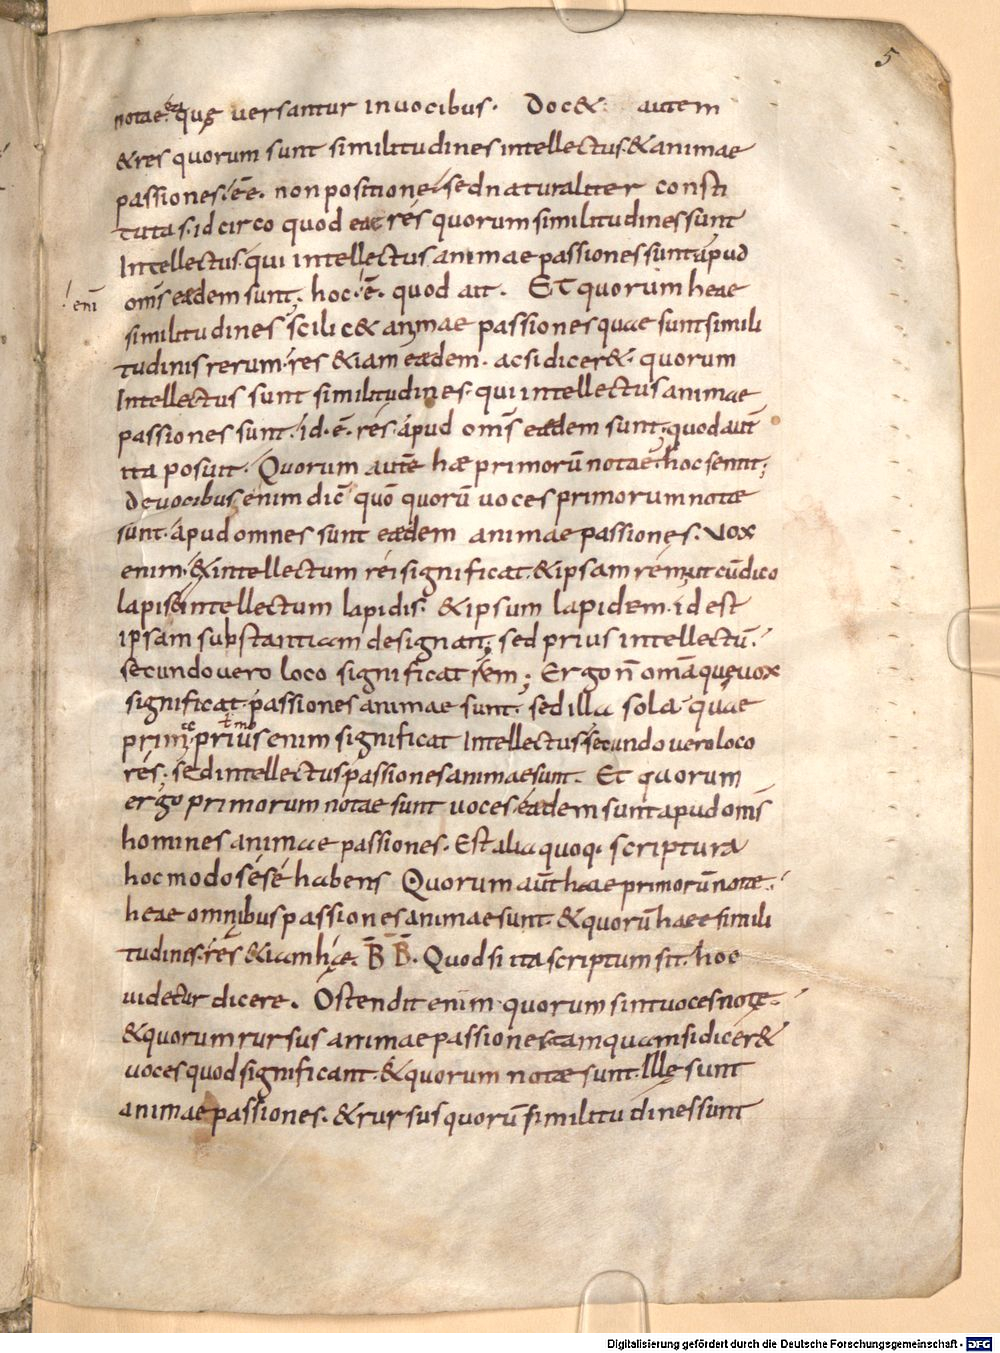 5
notae. ea quę versantur in vocibus. Doc& autem
& res quorum sunt similitudines intellectus & animae
passiones. eē. non positione sed naturaliter consti
tutas. idcirco quod eae res quorum similitudines sunt
Intellectus. qui intellectus animae passiones sunt apud
om̄s eaedem sunt; hoc. ē. quod ait. Et quorum heae
enī
similitudines scilic& animae passiones quae sunt simili
tudinis rerum. res &iam eaedem. ac si dicer&. quorum
Intellectus sunt similitudines. qui intellectus animae
passiones sunt. id. ē. res. apud om̄s eaedem sunt. quod aut̄
ita posuit. Quorum autē hae primorū notae. hoc sentit;
De vocibus enim dic̄ quō quorū uoces primorum notae
sunt. apud omnes sunt eaedem animae passiones. Vox
enim. & intellectum rei significat. & ipsam rem. ut cū dico
lapis. & intellectum lapidis. & ipsum lapidem. id est
ipsam substantiam designat; sed prius intellectū.
secundo vero loco significat rem; Ergo n̄ omā quę vox
significat. passiones animae sunt. sed illa sola quae
prima. prius enim significat Intellectus. secundo vero loco
res; sed intellectus passiones animae sunt. Et quorum
ergo primorum notae sunt uoces. eaedem sunt apud om̄s
homines animae passiones. Est alia quoq. scriptura
hoc modo sese habens Quorum aūt hae primorū notae.
heae omnibus passiones animae sunt. & quorū haee simili
tudines. res &iam hae. B B. Quod si ita scriptum sit. hoc
uidetur dicere. Ostendit enim quorum sint uoces notę.
& quorum rursus animae passiones. tamquam si dicer&
uoces quod significant. & quorum notae sunt. Illę sunt
animae passiones. & rursus quorū similitudines sunt
Digitalisierung gefördert durch die Deutsche Forschungsgemeinschaft - DFG